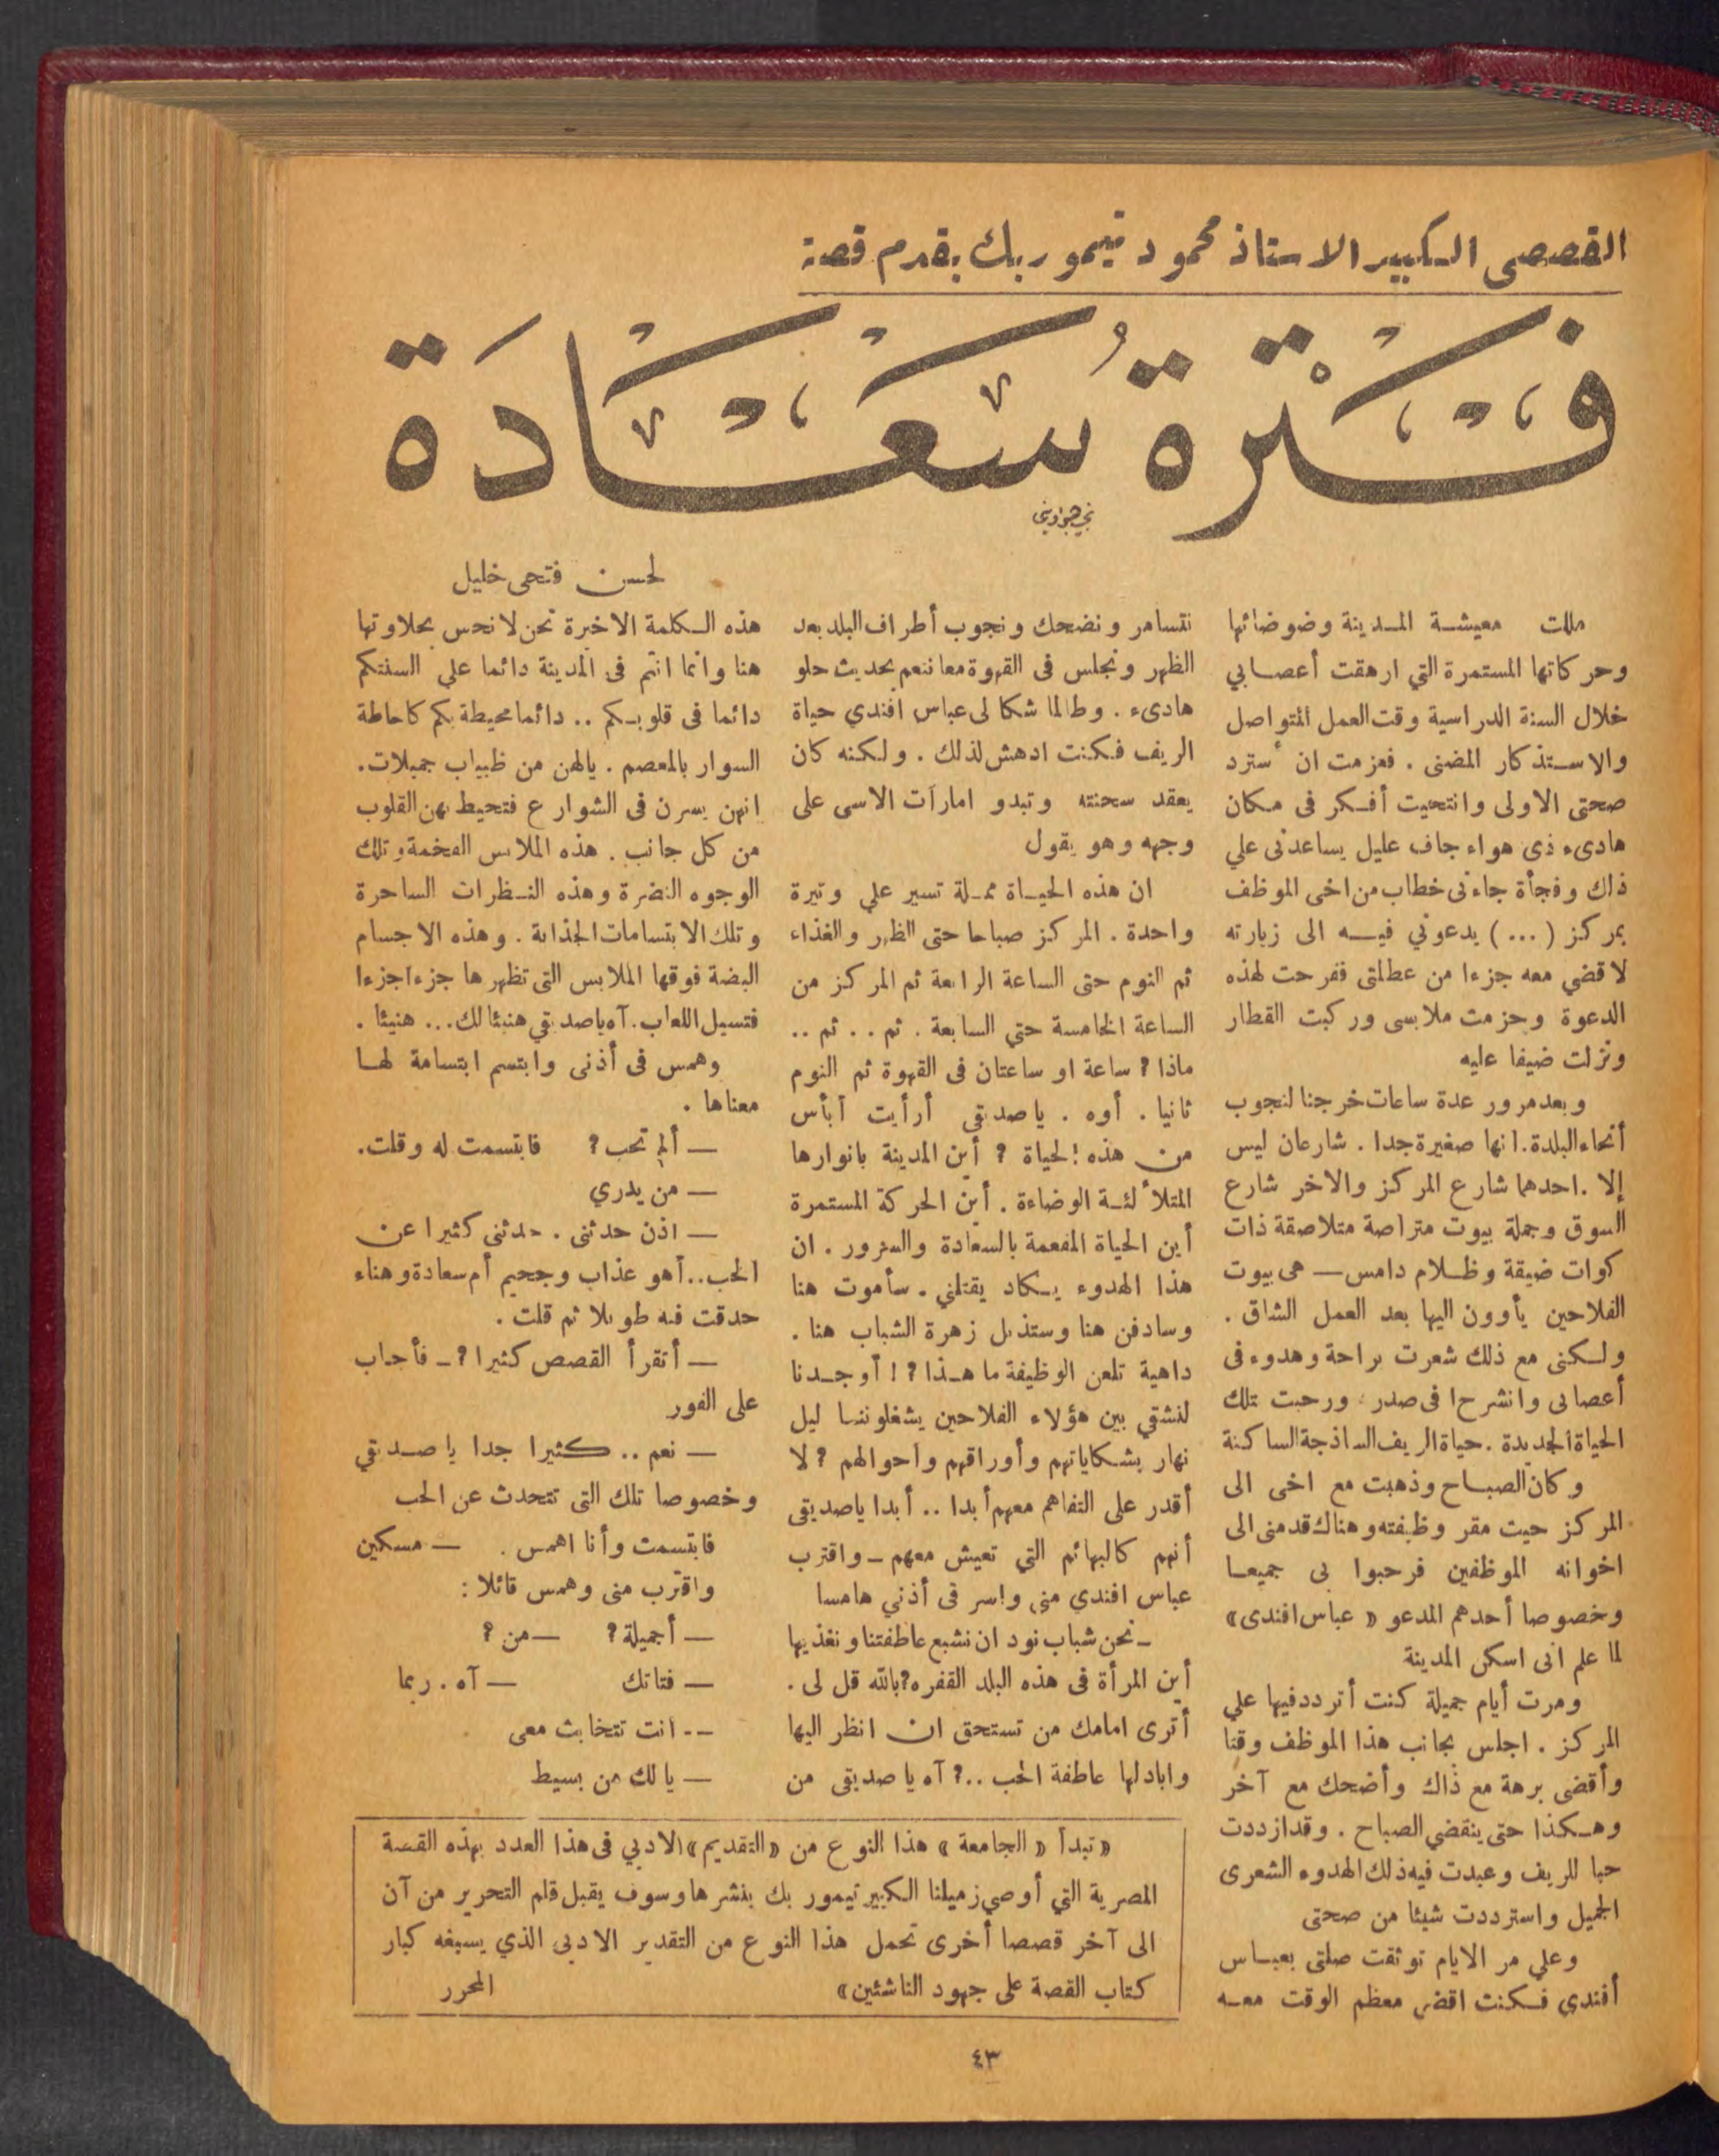 القصصى الكبير الاستاذ محمود تيمور بك يقدم قصة
فترة سعادة
لحسن فتحى خليل
مللت معيشة المدينة وضوضائها
وحركاتها المستمرة التي ارهقت أعصابي
خلال السنة الدراسية وقت العمل المتواصل
والاستذكار المضنى . فعزمت ان أسترد
صحتى الاولى وانتحيت أفكر فى مكان
هادىء ذى هواء جاف عليل يساعدنى علي
ذلك وفجأة جاءنى خطاب من اخى الموظف
بمركز ( ... ) يدعوني فيه الى زيارته
لاقضي معه جزءا من عطلتى ففرحت لهذه
الدعوة وحزمت ملابسى وركبت القطار
ونزلت ضيفا عليه
وبعد مرور عدة ساعات خرجنا لنجوب
أنحاء البلدة. انها صغيرة جدا . شارعان ليس
إلا . احدهما شارع المركز والاخر شارع
السوق وجملة بيوت متراصة متلاصقة ذات
كوات ضيقة وظلام دامس — هى بيوت
الفلاحين يأوون اليها بعد العمل الشاق .
ولكنى مع ذلك شعرت براحة وهدوء فى
أعصابى وانشرح ا فى صدر ورحبت بتلك
الحياة الجديدة . حياة الريف الساذجة الساكنة
وكان الصباح وذهبت مع اخى الى
المركز حيت مقر وظيفته وهناك قدمنى الى
اخوانه الموظفين فرحبوا بى جميعا
وخصوصا أحدهم المدعو « عباس افندى »
لما علم انى اسكن المدينة
ومرت أيام جميلة كنت أتردد فيها علي
المركز . اجلس بجانب هذا الموظف وقتا
وأقضى برهة مع ذاك وأضحك مع آخر
وهكذا حتى ينقضي الصباح . وقد ازددت
حبا للريف وعبدت فيه ذلك الهدوء الشعرى
الجميل واسترددت شيئا من صحتى
وعلي مر الايام توثقت صلتى بعباس
أفندي فكنت اقضى معظم الوقت معه
نتسامر ونضحك ونجوب أطراف البلد بعد
الظهر ونجلس فى القهوة معا ننعم بحديث حلو
هادىء . وطالما شكا لى عباس افندي حياة
الريف فكنت ادهش لذلك . ولكنه كان
يعقد سحنته وتبدو امارات الاسى على
وجهه وهو يقول
ان هذه الحياة مملة تسير علي وتيرة
واحدة . المركز صباحا حتى الظهر والغذاء
ثم النوم حتى الساعة الرابعة ثم المركز من
الساعة الخامسة حتي السابعة . ثم . . ثم ..
ماذا ؟ ساعة او ساعتان فى القهوة ثم النوم
ثانيا . أوه . ياصديقى أرأيت أبأس
من هذه الحياة ؟ أين المدينة بانوارها
المتلألئة الوضاءة . أين الحركة المستمرة
أين الحياة المفعمة بالسعادة والسرور . ان
هذا الهدوء يكاد يقتلني . سأموت هنا
وسادفن هنا وستذبل زهرة الشباب هنا .
داهية تلعن الوظيفة ما هذا ؟ ! أوجدنا
لنشقي بين هؤلاء الفلاحين يشغلوننا ليل
نهار بشكاياتهم وأوراقهم واحوالهم ؟ لا
أقدر على التفاهم معهم أبدا .. أبدا ياصديقى
أنهم كالبهائم التي تعيش معهم — واقترب
عباس افندي منى واسر فى أذني هامسا
— نحن شباب نود ان نشبع عاطفتنا ونغذيها
أين المرأة فى هذه البلد القفره ؟ بالله قل لى .
أترى امامك من تستحق ان انظر اليها
وابادلها عاطفة الحب ..؟ آه يا صديقى من
هذه الكلمة الاخيرة نحن لانحس بحلاوتها
هنا وانما انتم فى المدينة دائما علي السنتكم
دائما فى قلوبكم .. دائما محيطة بكم كاحاطة
السوار بالمعصم . يالهن من ظبياب جميلات.
انهن يسرن فى الشوارع فتحيط بهن القلوب
من كل جانب . هذه الملابس الفخمة وتلك
الوجوه النضرة وهذه النظرات الساحرة
وتلك الابتسامات الجذابة . وهذه الاجسام
البضة فوقها الملابس التى تظهرها جزءا جزءا
فتسيل اللعاب. آه ياصديقي هنيئا لك... هنيئا .
وهمس فى أذنى وابتسم ابتسامة لها
معناها .
— ألم تحب ؟ فابتسمت له وقلت.
— من يدري
— اذن حدثنى . حدثنى كثيرا عن
الحب .. أهو عذاب وجحيم أم سعادة وهناء
حدقت فيه طويلا ثم قلت .
— أتقرأ القصص كثيرا ؟ — فأجاب
على الفور
— نعم .. كثيرا جدا يا صديقي
وخصوصا تلك التى تتحدث عن الحب
فابتسمت وأنا اهمس . — مسكين
واقترب منى وهمس قائلا :
— أجميلة ؟ — من ؟
— فتاتك — آه . ربما
— انت تتخابث معى
— يالك من بسيط
« تبدأ « الجامعة » هذا النوع من « التقديم » الادبي فى هذا العدد بهذه القصة
المصرية التي أوصي زميلنا الكبير تيمور بك بنشرها وسوف يقبل قلم التحرير من آن
الى آخر قصصا أخرى تحمل هذا النوع من التقدير الادبى الذي يسبغه كبار
كتاب القصة على جهود الناشئين » المحرر
٤٣